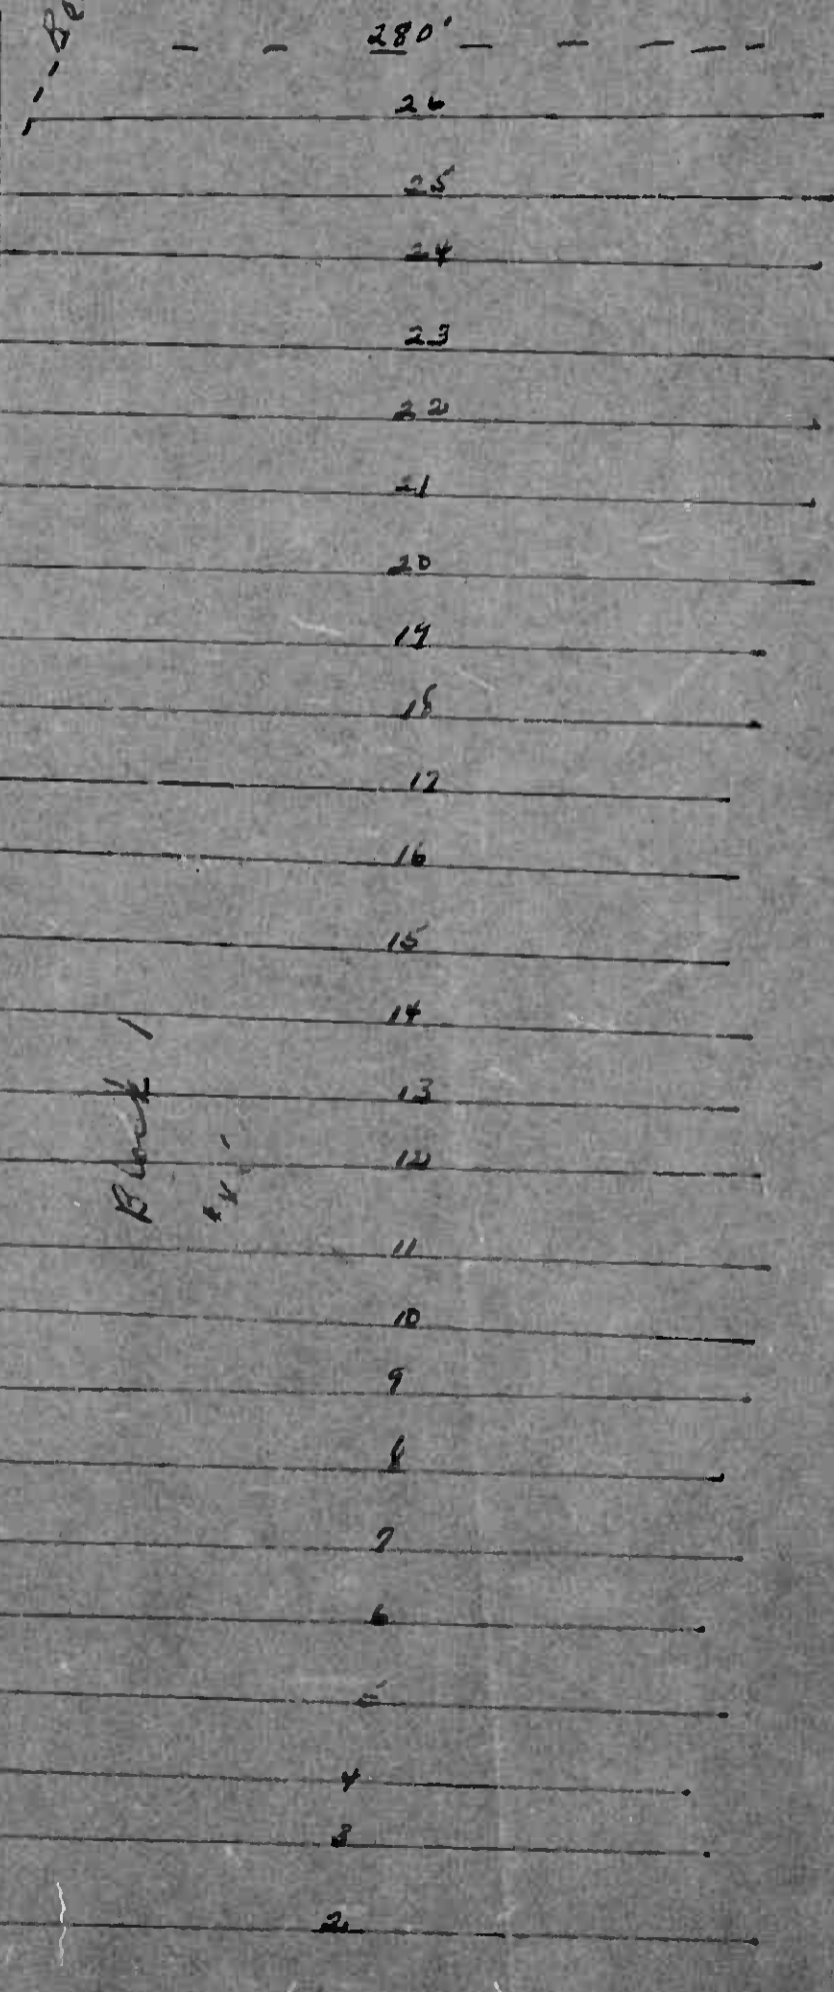 280'
26
25
24
23
22
21
20
19
18
17
16
15
14
13
12
11
10
9
8
7
6
5
4
3
2
Block 1